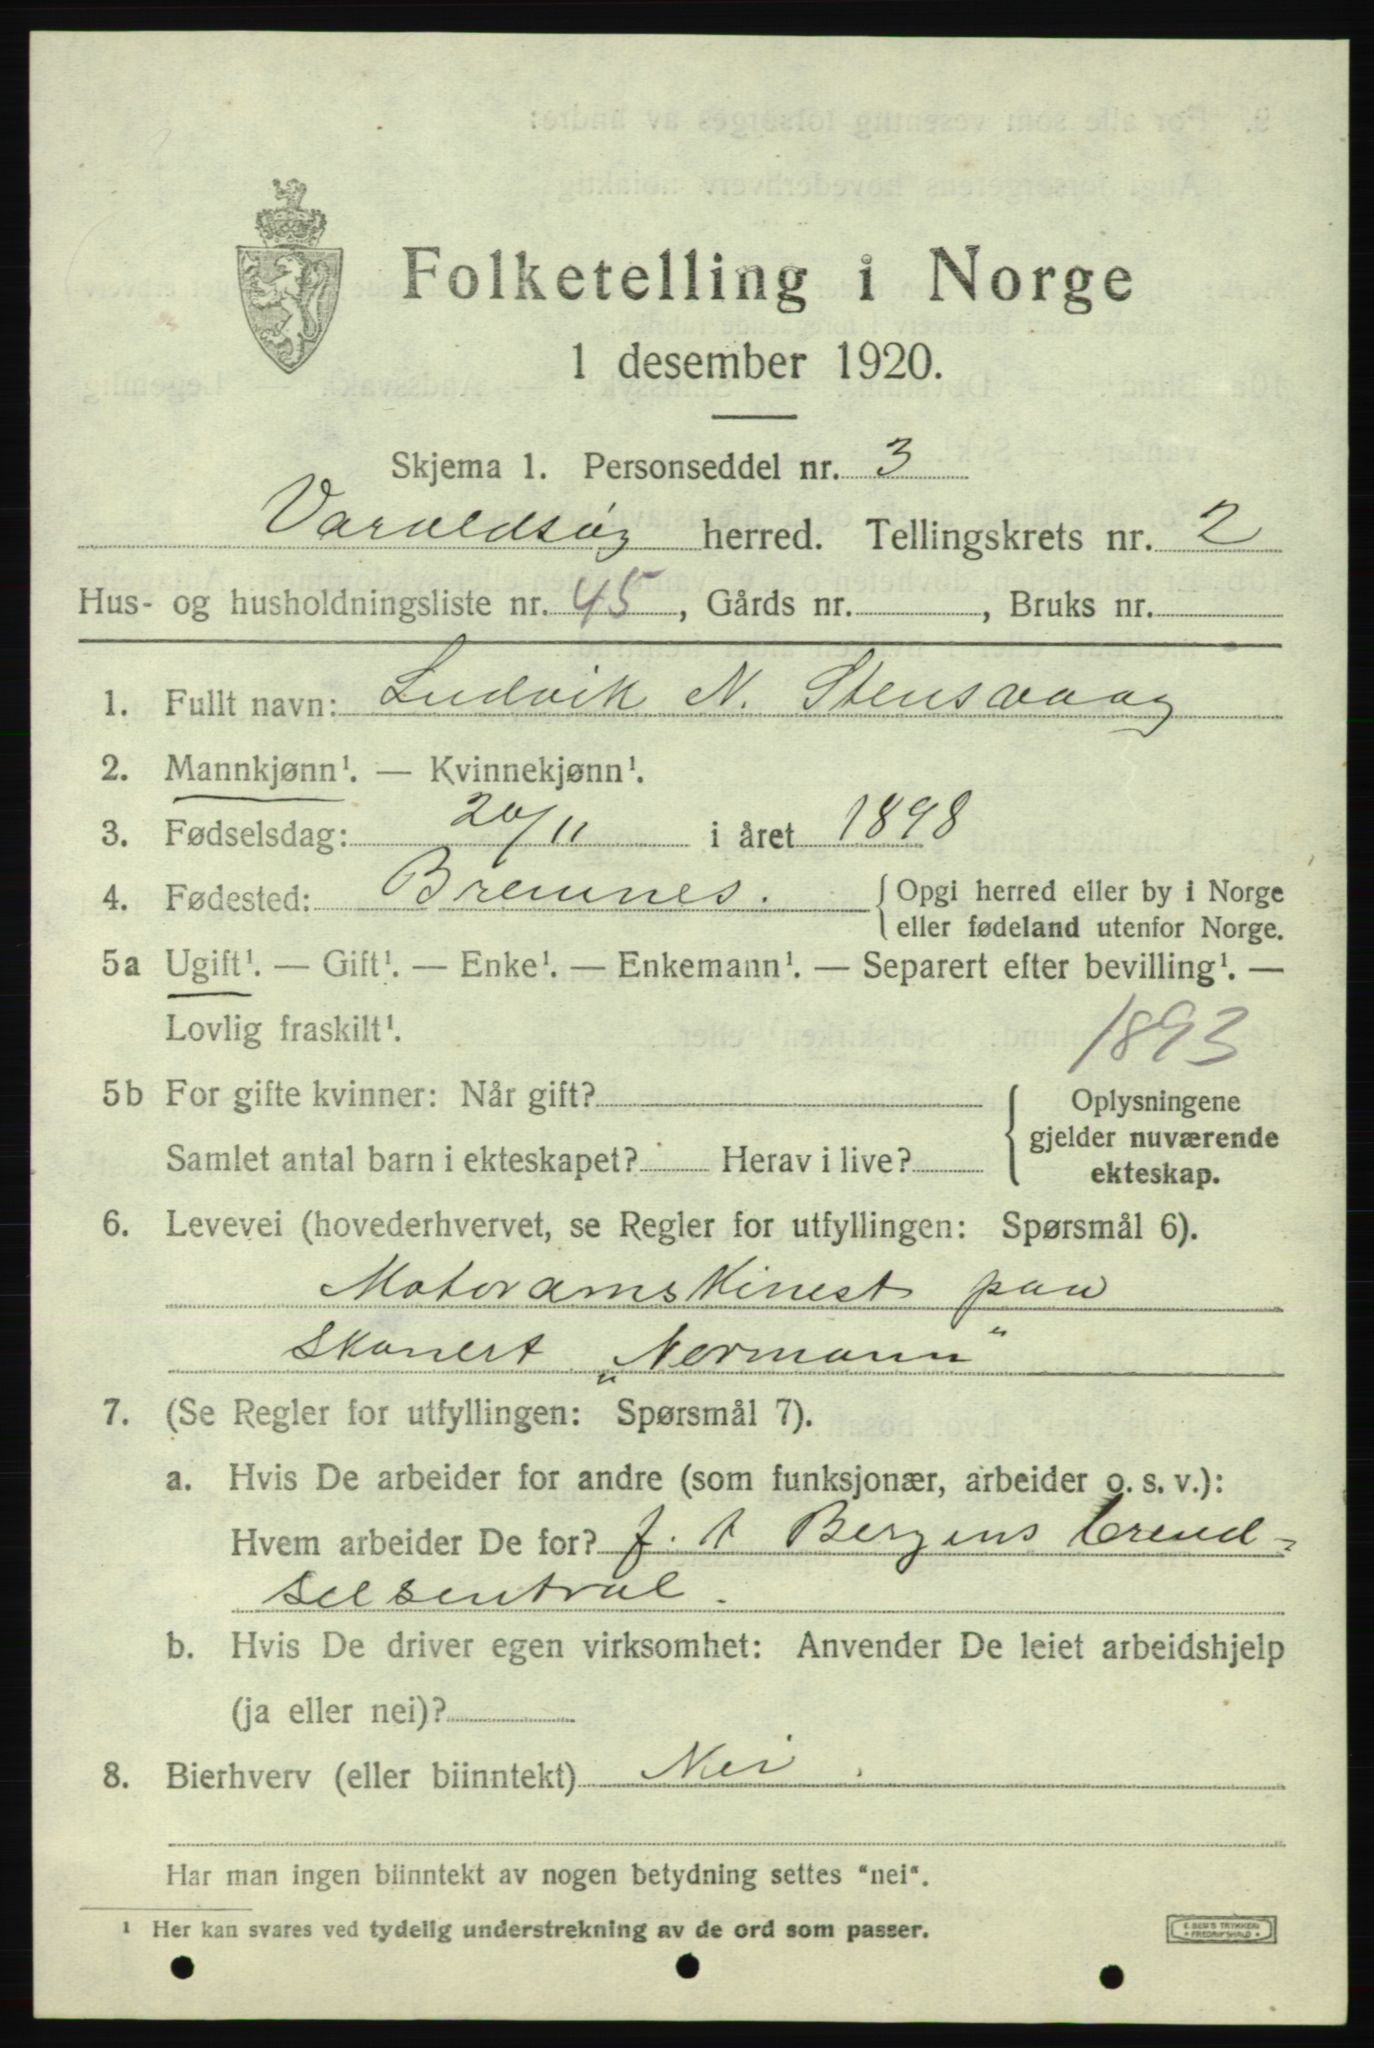 Folketelling i Norge
1 desember 1920.
Skjema 1. Personseddel nr. 3
Varaldsøy herred. Tellingskrets nr. 2
Hus- og husholdningsliste nr. 45, Gårds nr. , Bruks nr.
1. Fullt navn: Ludvik N. Stensvaag
2. Mannkjønn¹. — Kvinnekjønn¹.
3. Fødselsdag: 20/11 i året 1898
4. Fødested: Bremnes. { Opgi herred eller by i Norge
eller fødeland utenfor Norge.
5a Ugift¹. — Gift¹. — Enke¹. — Enkemann¹. — Separert efter bevilling¹. —
Lovlig fraskilt¹. 1893
5b For gifte kvinner: Når gift? { Oplysningene
gjelder nuværende
Samlet antal barn i ekteskapet? Herav i live?
ekteskap.
6. Levevei (hovederhvervet, se Regler for utfyllingen: Spørsmål 6).
Motoramskinest paa
skonert „Normann“
7. (Se Regler for utfyllingen: Spørsmål 7).
a. Hvis De arbeider for andre (som funksjonær, arbeider o. s. v.):
Hvem arbeider De for? f. t Bergens brend-
selsentral.
b. Hvis De driver egen virksomhet: Anvender De leiet arbeidshjelp
(ja eller nei)?
8. Bierhverv (eller biinntekt) Nei.
Har man ingen biinntekt av nogen betydning settes "nei".
¹ Her kan svares ved tydelig understrekning av de ord som passer.
E. SEM'S TRYKKERI
* FREDRIKSHALD *